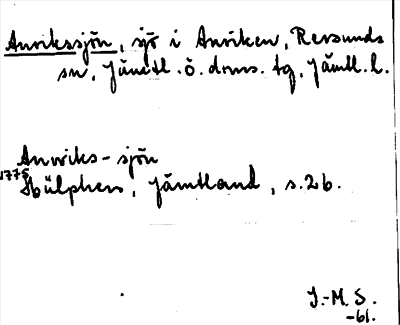 Anvikssjön, sjö i Anviken, Revsunds
sn, Jämtl. ö. doms. tg, Jämtl. l.
Anwiks-sjön
1775
Hülphers, Jämtland, s. 26.
J.-M. S.
-61.